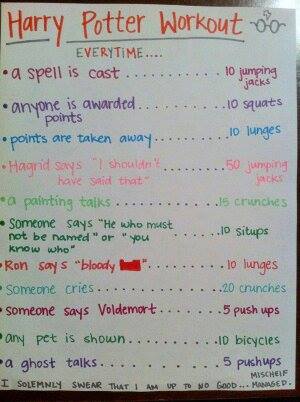 Harry Potter Workout
EVERYTIME....
• a spell is cast .......... 10 jumping
jacks
• anyone is awarded .......... 10 squats
points
• points are taken away .......... 10 lunges
• Hagrid says "I shouldn't .......... 50 jumping
have said that" jacks
• a painting talks .......... 15 crunches
• Someone says "He who must
not be named" or "you .......... 10 situps
know who"
• Ron says "bloody " .......... 10 lunges
• Someone cries .......... 20 crunches
• someone says Voldemort .......... 5 push ups
• any pet is shown .......... 10 bicycles
• a ghost talks .......... 5 pushups
I SOLEMNLY SWEAR THAT I AM UP TO NO GOOD... MISCHEIF
MANAGED.